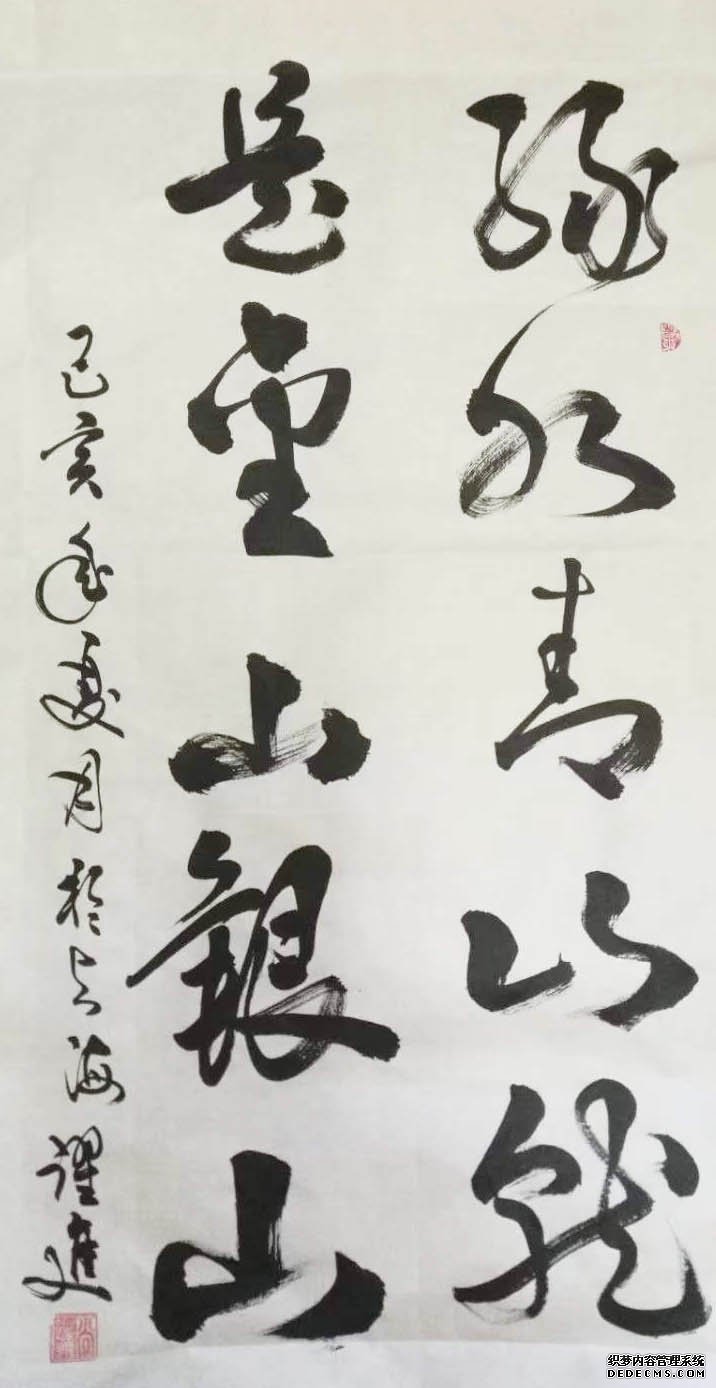 綠水青山就
是金山銀山
己亥年夏月於海進
织梦内容管理系统
DEDECMS.COM